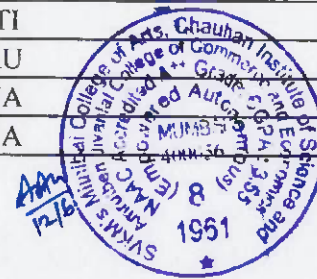 TI
U
A
A
SVKM's Mithibai College of Arts, Chauhan Institute of Science and
Amrutben Jivanlal College of Commerce and Economics
NAAC Accredited A++ Grade, CGPA : 3.55
(Empowered Autonomous)
MUMBAI
8
1961
12/6